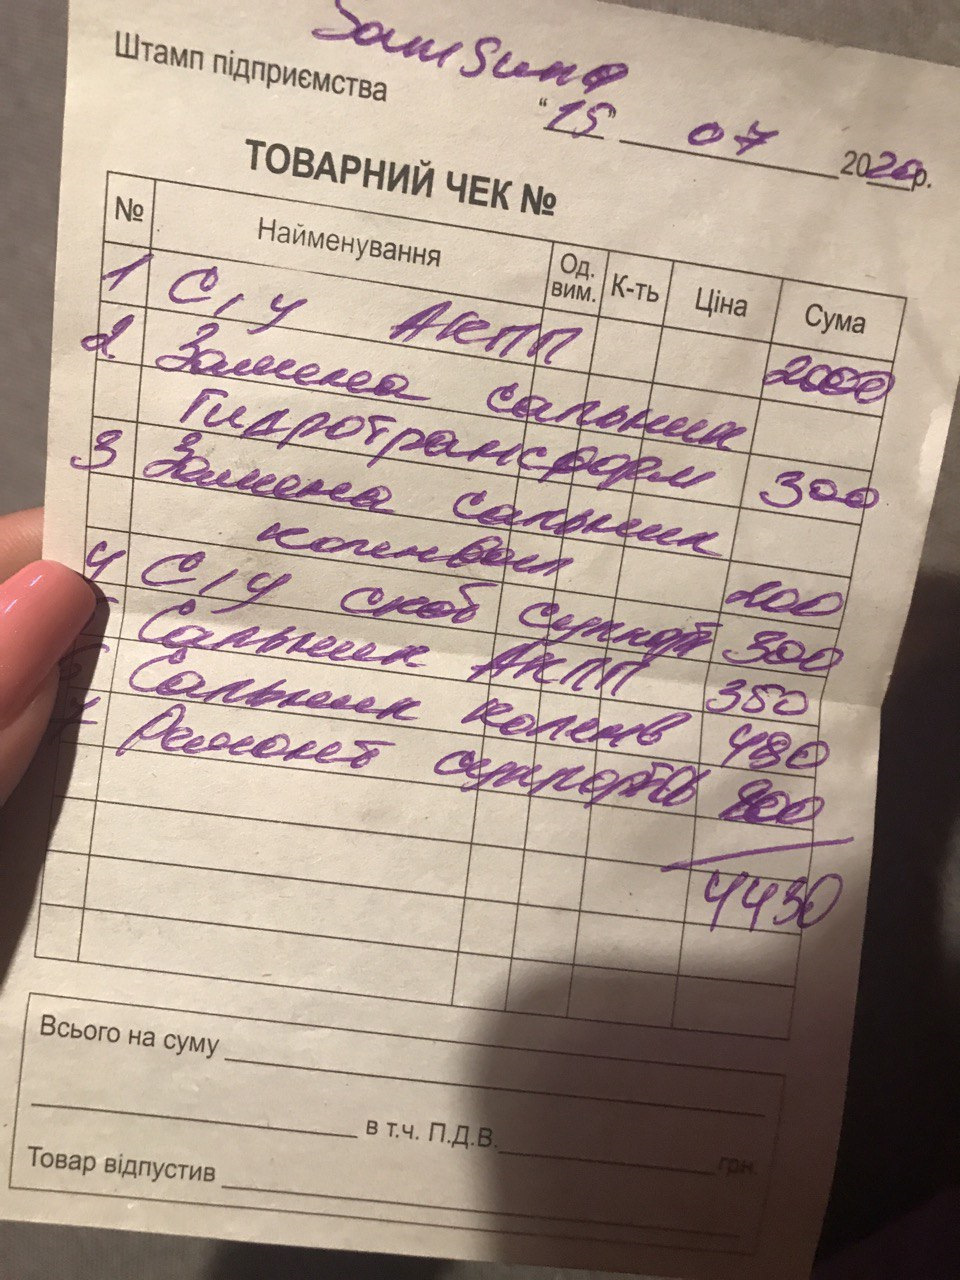 Samsung
Штамп підприємства
"15" 07 2020р.
ТОВАРНИЙ ЧЕК №
№ Найменування Од. вим. К-ть Ціна Сума
1 С/У АКПП 2000
2 Замена сальник
Гидротрансформ 300
3 Замена сальник
коленвал 200
4 С/У скоб суппорт 300
5 Сальник АКПП 350
6 Сальник коленв 480
7 Ремонт суппорта 800
4430
Всього на суму
в т.ч. П.Д.В. грн.
Товар відпустив